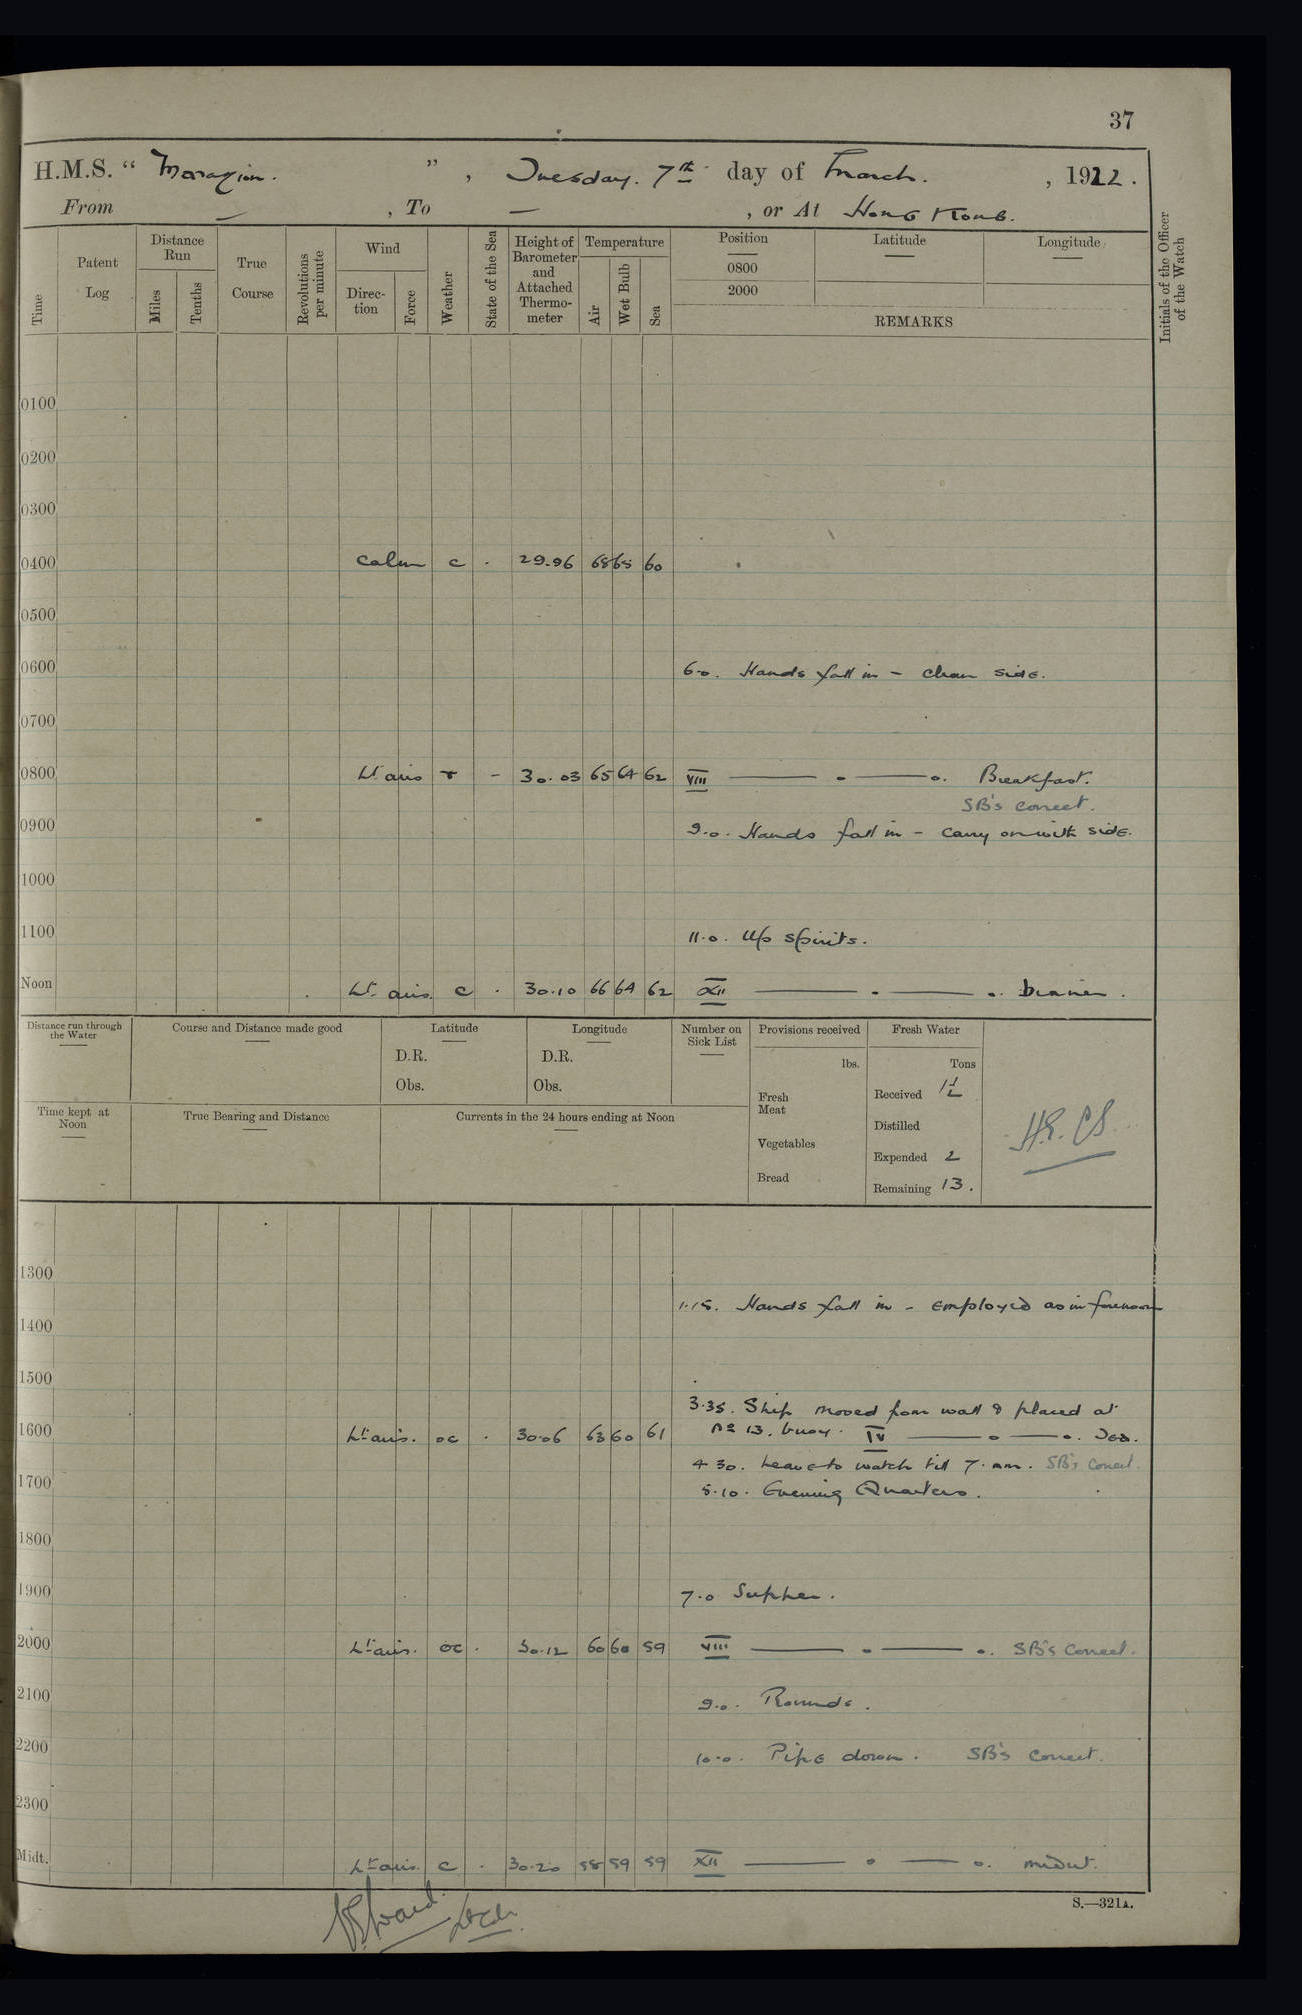 37
H.M.S. " Marazion. ", Tuesday. 7th day of March. , 1922.
From — , To — , or At Hong Kong.
Time
Patent Log
Distance Run
Miles
Tenths
True Course
Revolutions per minute
Wind
Direction
Force
Weather
State of the Sea
Height of Barometer and Attached Thermometer
Temperature
Air
Wet Bulb
Sea
Position
0800
2000
Latitude
Longitude
REMARKS
Initials of the Officer of the Watch
0100
0200
0300
0400 Calm c . 29.96 68 65 60
0500
0600 6.0. Hands fall in – clean side.
0700
0800 Lt airs r – 30.03 65 64 62 VIII — o — o. Breakfast.
SB's correct.
0900 9.0. Hands fall in – carry on with side.
1000
1100 11.0. Up spirits.
Noon Lt. airs. c . 30.10 66 64 62 XII — . — o. Dinner.
Distance run through the Water
Course and Distance made good
Latitude
D.R.
Obs.
Longitude
D.R.
Obs.
Number on Sick List
Provisions received
lbs.
Fresh Meat
Vegetables
Bread
Fresh Water
Tons
Received 1½
Distilled
Expended 2
Remaining 13.
Time kept at Noon
True Bearing and Distance
Currents in the 24 hours ending at Noon
1300
1.15. Hands fall in – employed as in forenoon
1400
1500
3.35. Ship moved from wall & placed at
1600 Lt airs. oc . 30.06 63 60 61 No 13. buoy. IV — o — o. Tea.
4.30. Leave to watch till 7. am. SB's Correct.
1700 5.10. Evening Quarters.
1800
1900 7.0 Supper.
2000 Lt airs. oc . 30.12 60 60 59 VIII — o — o. SB's Correct.
2100 9.0. Rounds.
2200 10.0. Pipe down. SB's Correct.
2300
Midt. Lt airs. c . 30.20 58 59 59 XII — o — o. midnt.
S.—321A.